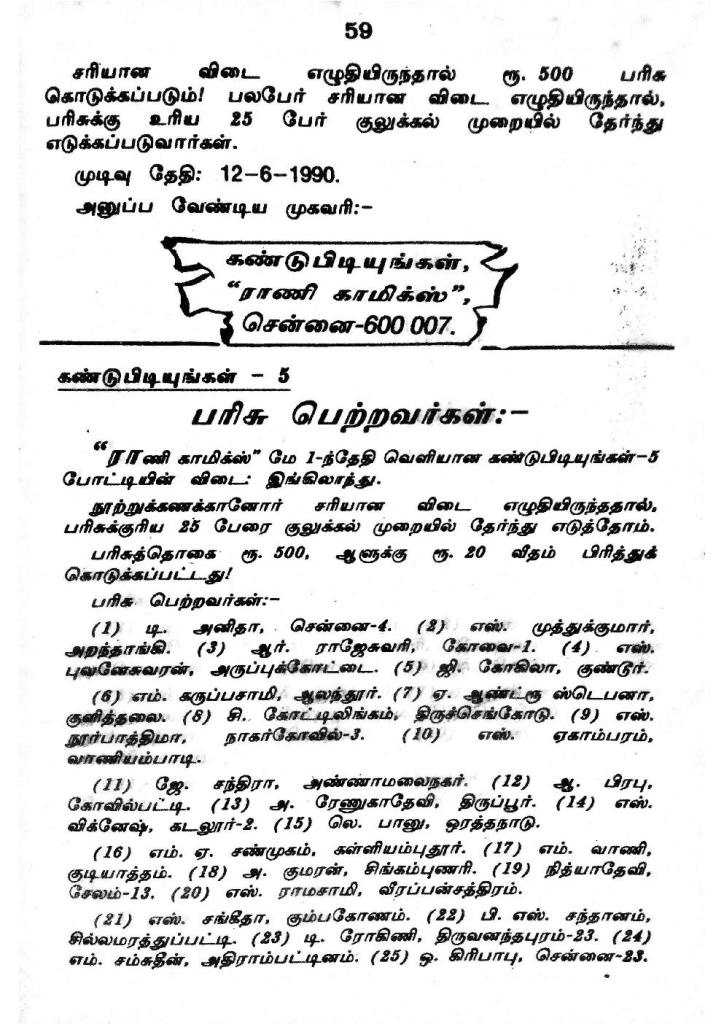 59
சரியான விடை எழுதியிருந்தால் ரூ. 500 பரிசு
கொடுக்கப்படும்! பலபேர் சரியான விடை எழுதியிருந்தால்,
பரிசுக்கு உரிய 25 பேர் குலுக்கல் முறையில் தேர்ந்து
எடுக்கப்படுவார்கள்.
முடிவு தேதி: 12-6-1990.
அனுப்ப வேண்டிய முகவரி:-
கண்டுபிடியுங்கள்,
"ராணி காமிக்ஸ்",
சென்னை-600 007.
கண்டுபிடியுங்கள் - 5
பரிசு பெற்றவர்கள்:-
"ராணி காமிக்ஸ்" மே 1-ந்தேதி வெளியான கண்டுபிடியுங்கள்-5
போட்டியின் விடை: இங்கிலாந்து.
நூற்றுக்கணக்கானோர் சரியான விடை எழுதியிருந்ததால்,
பரிசுக்குரிய 25 பேரை குலுக்கல் முறையில் தேர்ந்து எடுத்தோம்.
பரிசுத்தொகை ரூ. 500, ஆளுக்கு ரூ. 20 வீதம் பிரித்துக்
கொடுக்கப்பட்டது!
பரிசு பெற்றவர்கள்:-
(1) டி. அனிதா, சென்னை-4. (2) எஸ். முத்துக்குமார்,
அறந்தாங்கி. (3) ஆர். ராஜேசுவரி, கோவை-1. (4) எஸ்.
புவனேசுவரன், அருப்புக்கோட்டை. (5) ஜி. கோகிலா, குண்டூர்.
(6) எம். கருப்பசாமி, ஆலந்தூர். (7) ஏ. ஆண்ட்ரூ ஸ்டெபனா,
குளித்தலை. (8) சி. கோட்டிலிங்கம், திருச்செங்கோடு. (9) எஸ்.
நூர்பாத்திமா, நாகர்கோவில்-3. (10) எஸ். ஏகாம்பரம்,
வாணியம்பாடி.
(11) ஜே. சந்திரா, அண்ணாமலைநகர். (12) ஆ. பிரபு,
கோவில்பட்டி. (13) அ. ரேணுகாதேவி, திருப்பூர். (14) எஸ்.
விக்னேஷ், கடலூர்-2. (15) லெ. பானு, ஒரத்தநாடு.
(16) எம். ஏ. சண்முகம், கள்ளியம்புதூர். (17) எம். வாணி,
குடியாத்தம். (18) அ. குமரன், சிங்கம்புணரி. (19) நித்யாதேவி,
சேலம்-13. (20) எஸ். ராமசாமி, வீரப்பன்சத்திரம்.
(21) எஸ். சங்கீதா, கும்பகோணம். (22) பி. எஸ். சந்தானம்,
சில்லமரத்துப்பட்டி. (23) டி. ரோகிணி, திருவனந்தபுரம்-23. (24)
எம். சம்சுதீன், அதிராம்பட்டினம். (25) ஒ. கிரிபாபு, சென்னை-23.